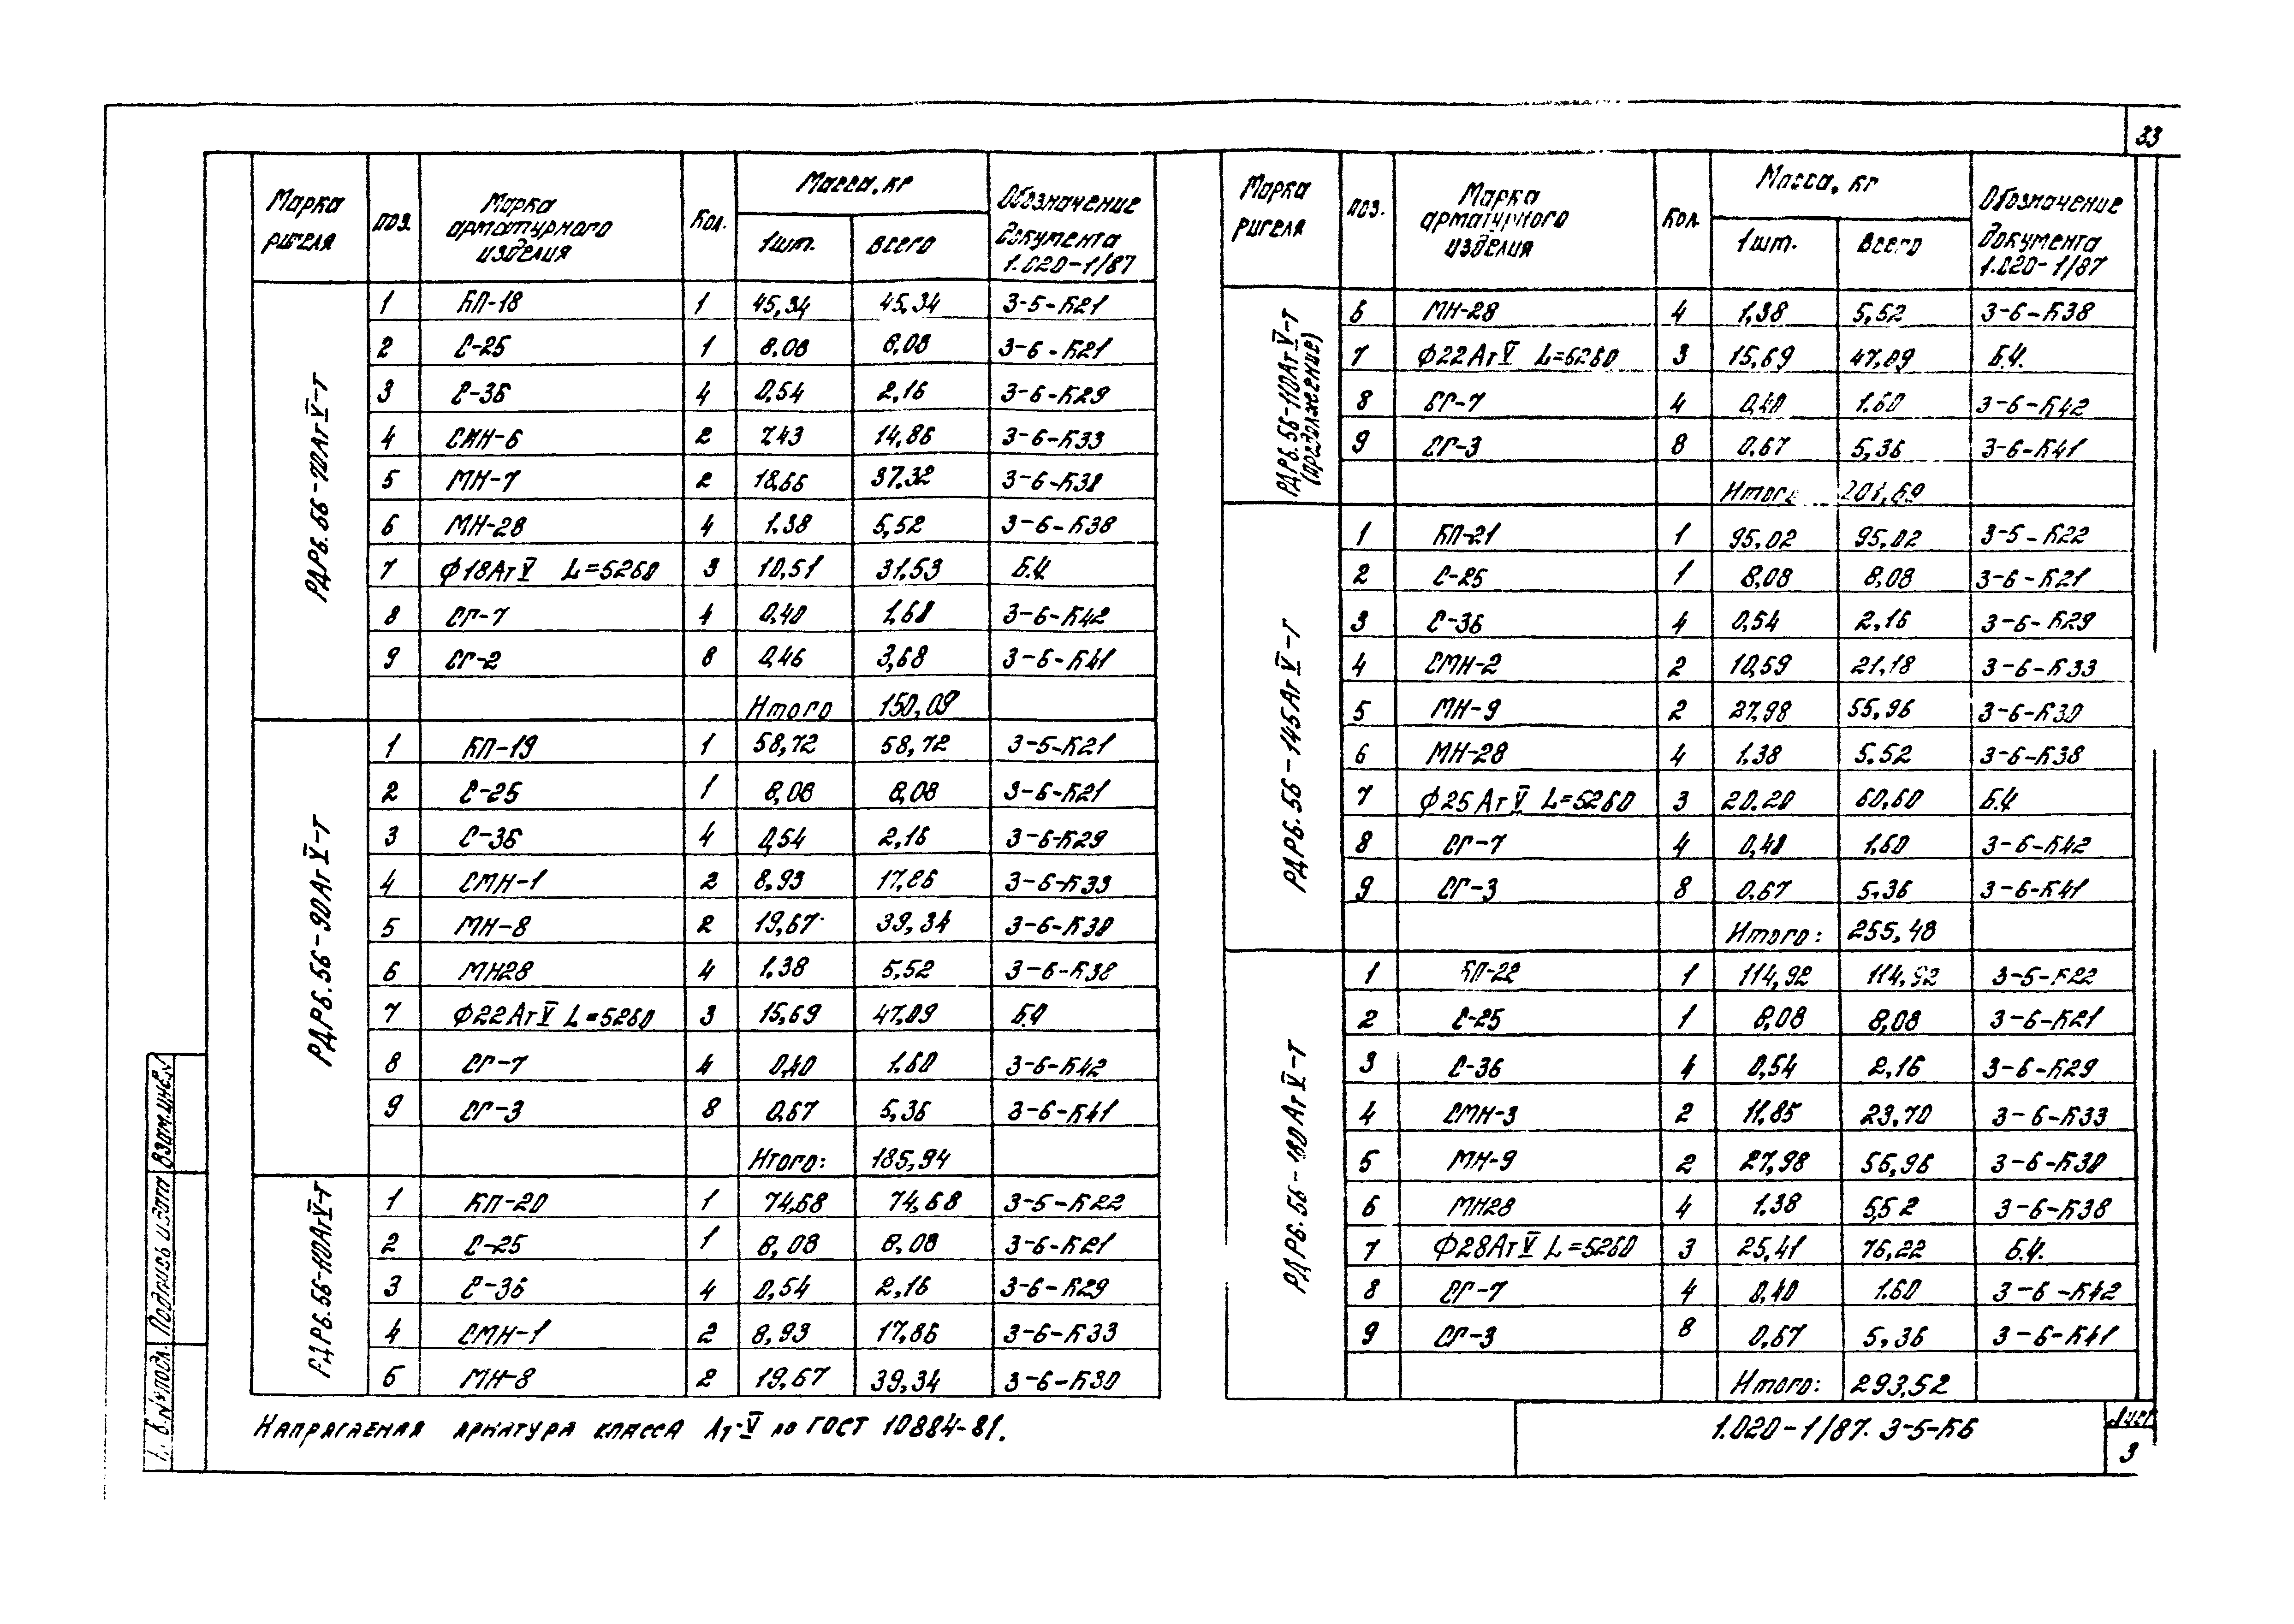 33
Марка ригеля | поз. | Марка арматурного изделия | Кол. | Масса, кг 1шт. | Масса, кг всего | Обозначение документа 1.020-1/87
РДР6.56-70АтV-т
1 | КП-18 | 1 | 45,34 | 45,34 | 3-5-К21
2 | С-25 | 1 | 8,08 | 8,08 | 3-6-К21
3 | С-36 | 4 | 0,54 | 2,16 | 3-6-К29
4 | СМН-6 | 2 | 7,43 | 14,86 | 3-6-К33
5 | МН-7 | 2 | 18,66 | 37,32 | 3-6-К30
6 | МН-28 | 4 | 1,38 | 5,52 | 3-6-К38
7 | ф18АтV L=5260 | 3 | 10,51 | 31,53 | Б.Ч
8 | СГ-7 | 4 | 0,40 | 1,60 | 3-6-К42
9 | СГ-2 | 8 | 0,46 | 3,68 | 3-6-К41
Итого 150,09
РДР6.56-90АтV-т
1 | КП-19 | 1 | 58,72 | 58,72 | 3-5-К21
2 | С-25 | 1 | 8,08 | 8,08 | 3-6-К21
3 | С-36 | 4 | 0,54 | 2,16 | 3-6-К29
4 | СМН-1 | 2 | 8,93 | 17,86 | 3-6-К33
5 | МН-8 | 2 | 19,67 | 39,34 | 3-6-К30
6 | МН28 | 4 | 1.38 | 5,52 | 3-6-К38
7 | ф22АтV L=5260 | 3 | 15,69 | 47,09 | Б.Ч
8 | СГ-7 | 4 | 0,40 | 1.60 | 3-6-К42
9 | СГ-3 | 8 | 0,67 | 5,36 | 3-6-К41
Итого: 185,94
РДР6.56-110АтV-т
1 | КП-20 | 1 | 74,68 | 74,68 | 3-5-К22
2 | С-25 | 1 | 8,08 | 8,08 | 3-6-К21
3 | С-36 | 4 | 0,54 | 2,16 | 3-6-К29
4 | СМН-1 | 2 | 8,93 | 17,86 | 3-6-К33
5 | МН-8 | 2 | 19,67 | 39,34 | 3-6-К30
Марка ригеля | поз. | Марка арматурного изделия | Кол. | Масса, кг 1шт. | Масса, кг всего | Обозначение документа 1.020-1/87
РДР6.56-110АтV-т (продолжение)
6 | МН-28 | 4 | 1,38 | 5,52 | 3-6-К38
7 | ф22АтV L=5260 | 3 | 15,69 | 47,09 | Б.Ч.
8 | СГ-7 | 4 | 0,40 | 1.60 | 3-6-К42
9 | СГ-3 | 8 | 0,67 | 5,36 | 3-6-К41
Итого 201,69
РДР6.56-145АтV-т
1 | КП-21 | 1 | 95,02 | 95,02 | 3-5-К22
2 | С-25 | 1 | 8,08 | 8,08 | 3-6-К21
3 | С-36 | 4 | 0,54 | 2,16 | 3-6-К29
4 | СМН-2 | 2 | 10,59 | 21,18 | 3-6-К33
5 | МН-9 | 2 | 27,98 | 55,96 | 3-6-К30
6 | МН-28 | 4 | 1.38 | 5.52 | 3-6-К38
7 | ф25АтV L=5260 | 3 | 20.20 | 60,60 | Б.Ч
8 | СГ-7 | 4 | 0,40 | 1,60 | 3-6-К42
9 | СГ-3 | 8 | 0,67 | 5.36 | 3-6-К41
Итого: 255,48
РДР6.56-180АтV-т
1 | КП-22 | 1 | 114,92 | 114,92 | 3-5-К22
2 | С-25 | 1 | 8,08 | 8,08 | 3-6-К21
3 | С-36 | 4 | 0,54 | 2,16 | 3-6-К29
4 | СМН-3 | 2 | 11,85 | 23,70 | 3-6-К33
5 | МН-9 | 2 | 27,98 | 55,96 | 3-6-К30
6 | МН28 | 4 | 1.38 | 5,52 | 3-6-К38
7 | ф28АтV L=5260 | 3 | 25,41 | 76,22 | Б.Ч.
8 | СГ-7 | 4 | 0,40 | 1.60 | 3-6-К42
9 | СГ-3 | 8 | 0,67 | 5,36 | 3-6-К41
Итого: 293,52
Напрягаемая арматура класса Ат-V по ГОСТ 10884-81.
1.020-1/87. 3-5-К6
Лист
3
Взам.инв.№
Подпись и дата
№ подл.